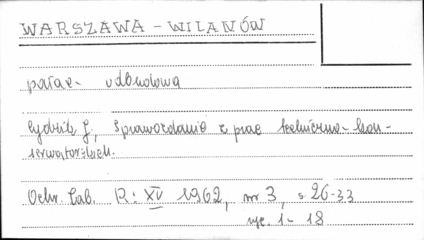 WARSZAWA - WILANÓW
pałac - odbudowa
Cydzik J., Sprawozdanie z prac techniczno-kon-
serwatorskich.
Ochr. Zab. R: XV 1962, nr 3, s 26-33
ryc. 1 - 18